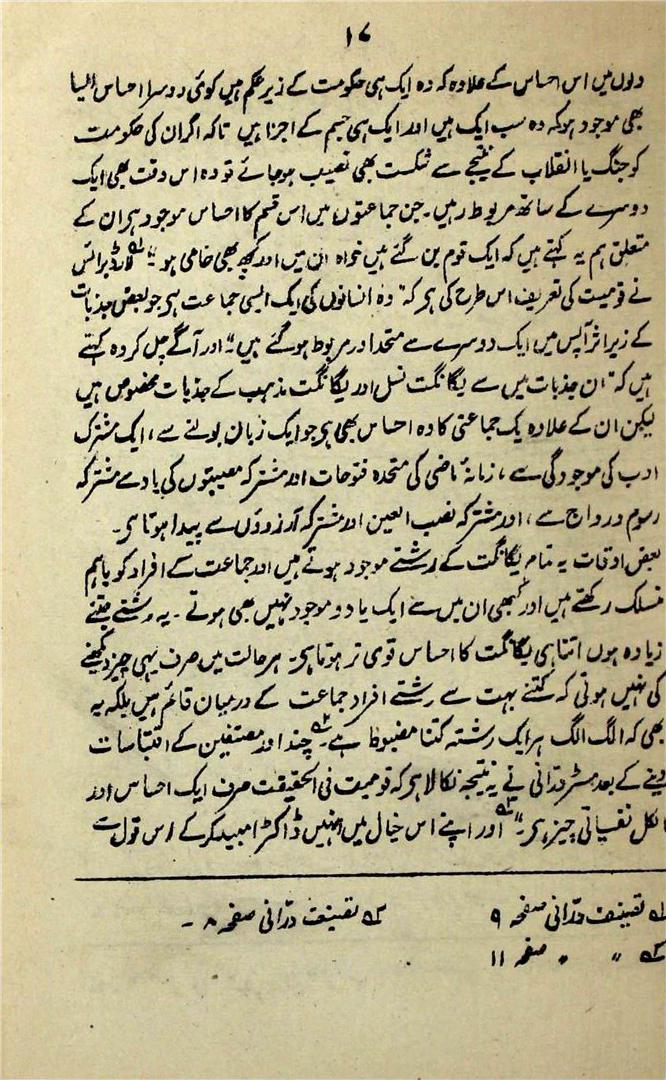 ۱۷
دلوں میں اس احساس کے علاوہ کہ وہ ایک ہی حکومت کے زیر حکم ہیں کوئی دوسرا احساس ایسا
بھی موجود ہو کہ وہ سب ایک ہیں اور ایک ہی جسم کے اجزا ہیں تاکہ اگر ان کی حکومت
کو جنگ یا انقلاب کے نتیجے سے شکست بھی نصیب ہوجائے تو وہ اس وقت بھی ایک
دوسرے کے ساتھ مربوط رہیں۔ جن جماعتوں میں اس قسم کا احساس موجود ہر ان کے
متعلق ہم یہ کہتے ہیں کہ ایک قوم بن گئے ہیں خواہ ان میں اور کچھ بھی خامی ہو"۔ لارڈ برائس
نے قومیت کی تعریف اس طرح کی ہر کہ "وہ انسانوں کی ایک ایسی جماعت ہر جو بعض جذبات
کے زیر اثر آپس میں ایک دوسرے سے متحد اور مربوط ہوگئے ہیں"۔ اور آگے چل کر وہ کہتے
ہیں کہ "ان جذبات میں سے یگانگت نسل اور یگانگت مذہب کے جذبات مخصوص ہیں
لیکن ان کے علاوہ یک جماعتی کا وہ احساس بھی ہر جو ایک زبان بولنے سے، ایک مشترک
ادب کی موجودگی سے، زمانۂ ماضی کی متحدہ فتوحات اور مشترکہ مصیبتوں کی یاد سے مشترکہ
رسوم و رواج سے، اور مشترکہ نصب العین اور مشترکہ آرزوؤں سے پیدا ہوتا ہر۔
بعض اوقات یہ تمام یگانگت کے رشتے موجود ہوتے ہیں اور جماعت کے افراد کو باہم
منسلک رکھتے ہیں اور کبھی ان میں سے ایک یا دو موجود نہیں بھی ہوتے۔ یہ رشتے جتنے
زیادہ ہوں اتنا ہی یگانگت کا احساس قوی تر ہوتا ہر۔ ہر حالت میں صرف یہی چیز دیکھنے
کی نہیں ہوتی کہ کتنے بہت سے رشتے افراد جماعت کے درمیان قائم ہیں بلکہ یہ
بھی کہ الگ الگ ہر ایک رشتہ کتنا مضبوط ہے"۔ ۲ چند اور مصنفین کے اقتباسات
دینے کے بعد مسٹر درانی نے یہ نتیجہ نکالا ہر کہ قومیت فی الحقیقت صرف ایک احساس اور
بالکل نفسیاتی چیز ہر"۔ ۳ اور اپنے اس خیال میں انہیں ڈاکٹر امبیدکر کے اس قول سے
۱ تصنیف درّانی صفحہ ۹ ۲ تصنیف درّانی صفحہ ۸۔
۳ " " صفحہ ۱۱